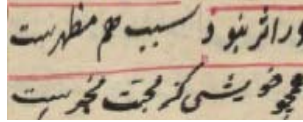 ور اثر نبود سبب هم مظهرست
همچو خویشی کز محبت مخبرست